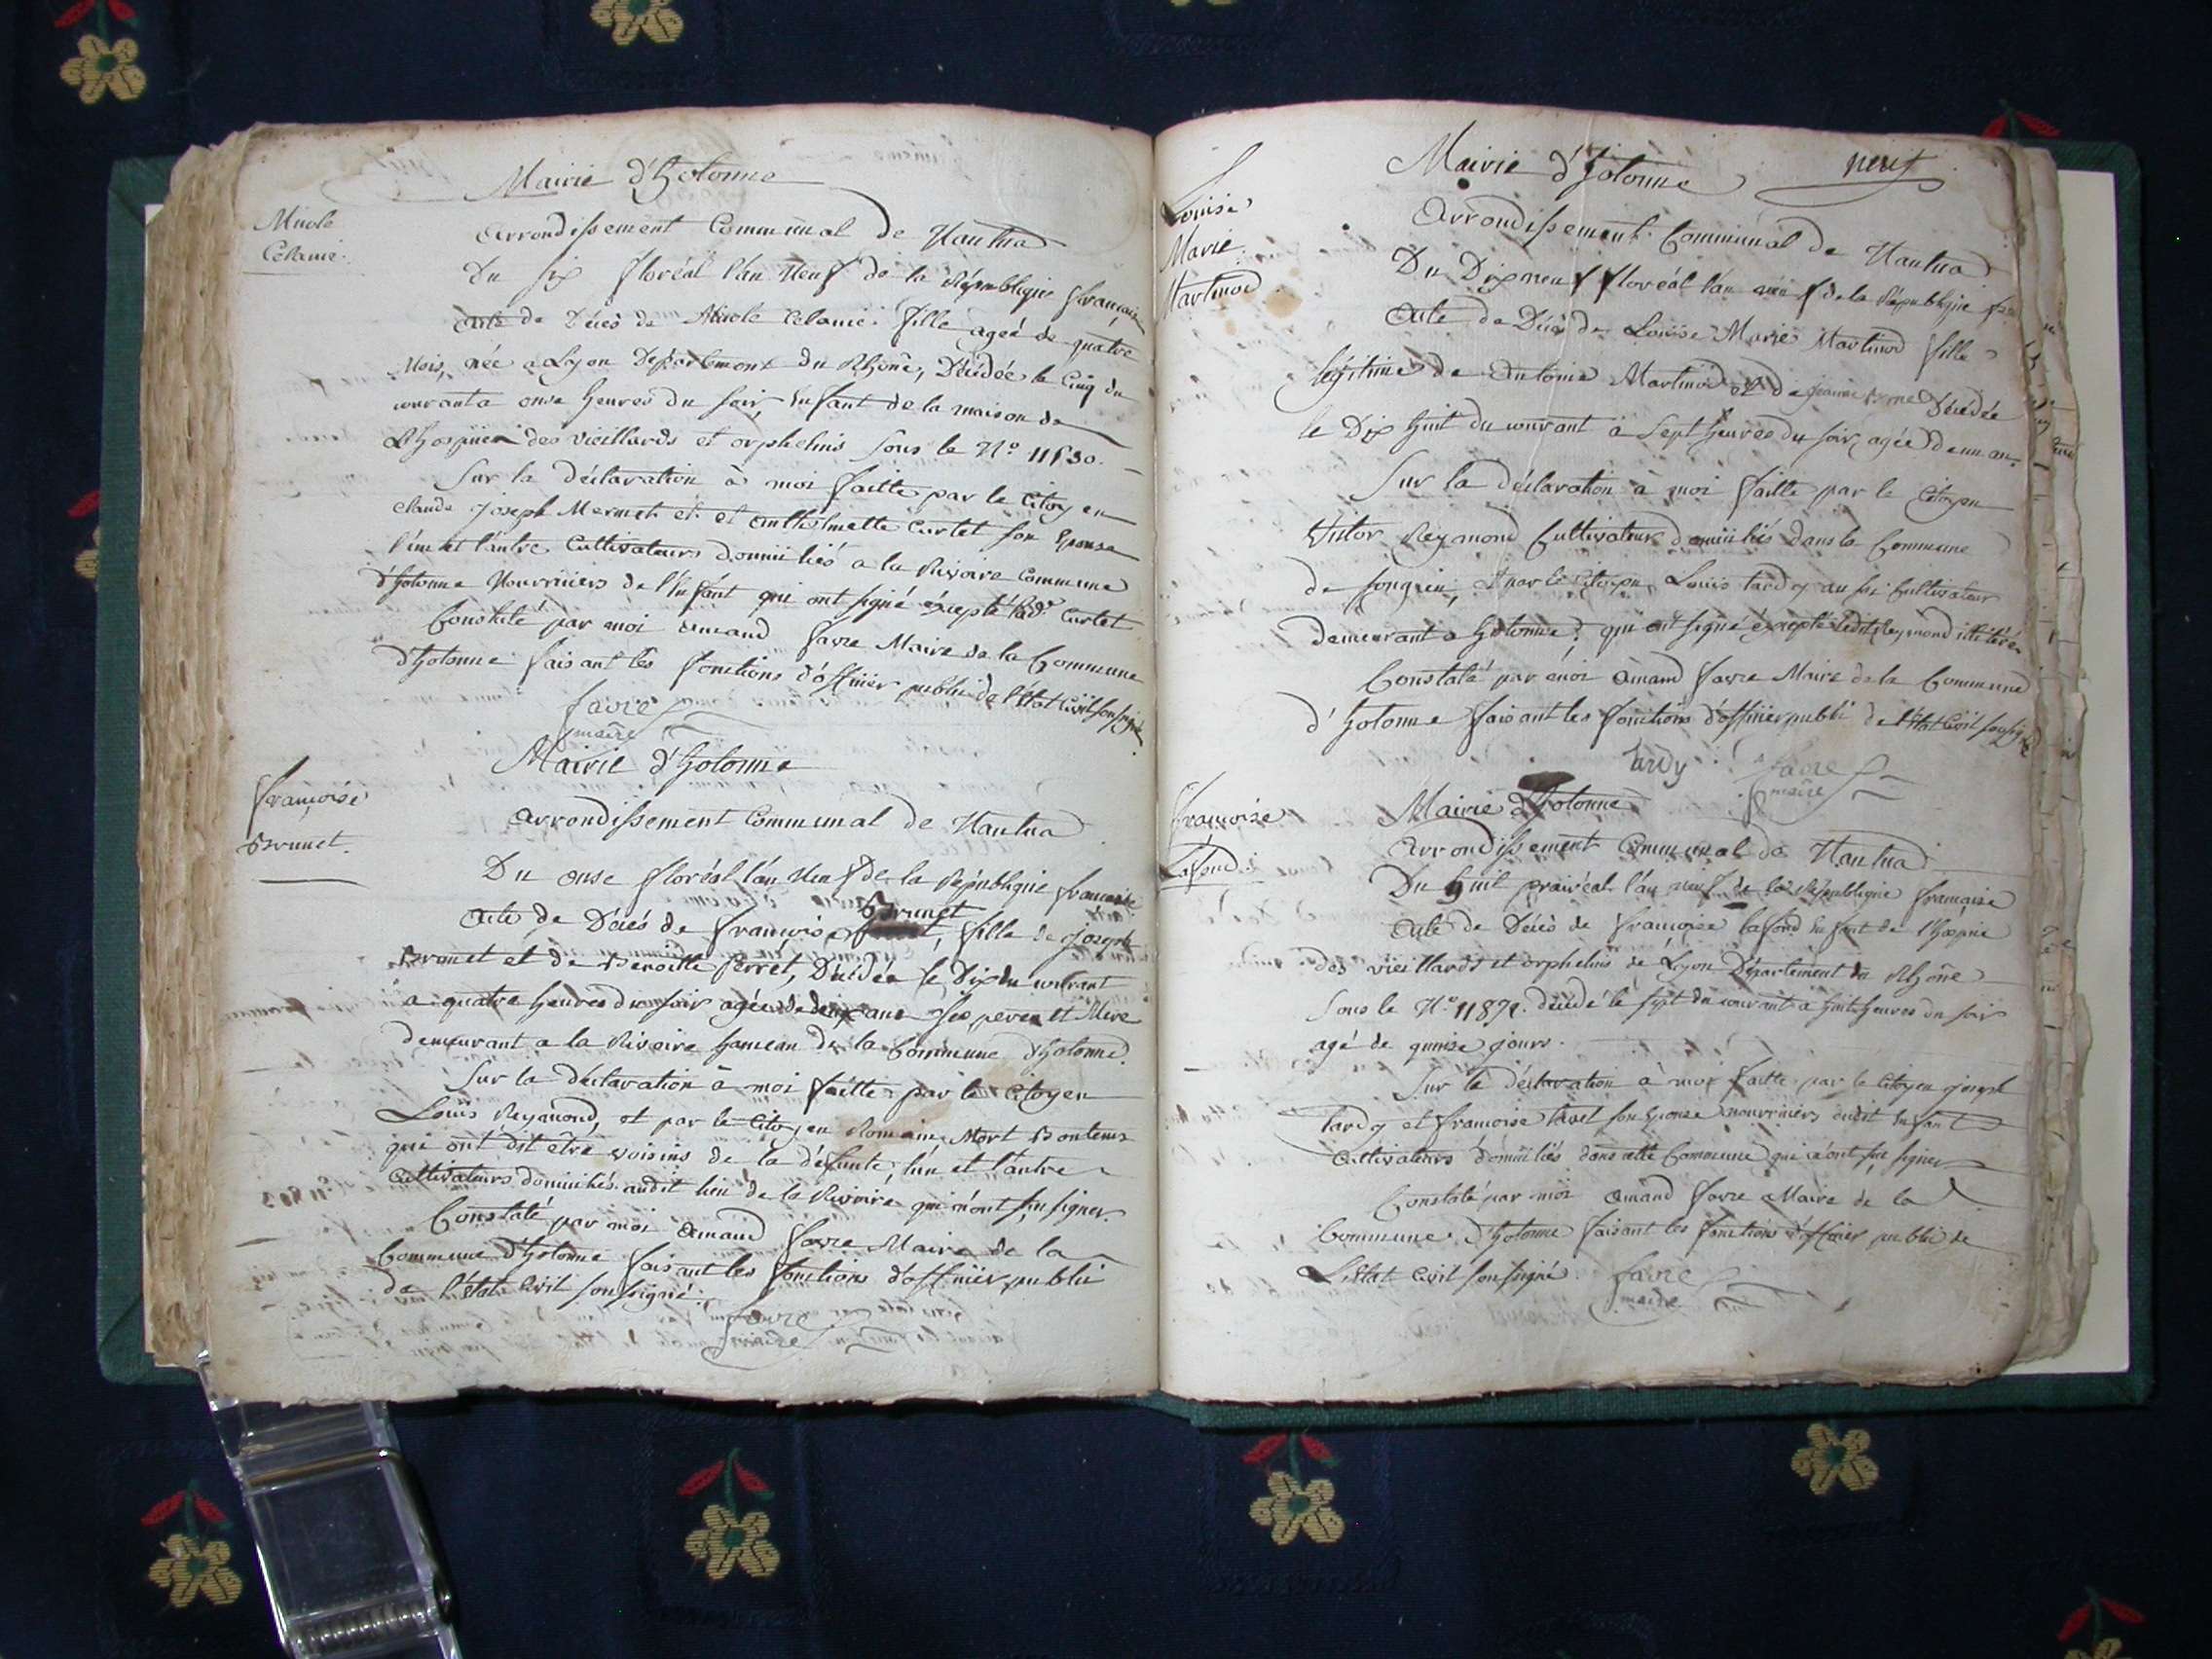 Mairie d'hotonne
Arrondissement Communal de Nantua
Du six floréal l'an neuf de la République française
Acte de Décès de Celanie fille ageé de quatre
Mois, née a Lyon Département du Rhône, Décédée le Cinq du
courant a onse heures du soir, Enfant de la maison de
L'hospice des vieillards et orphelins sous le N.º
Sur la déclaration à moi faitte par le Citoyen
claude joseph Mermet et et anthelmette Curtet son Epouse
l'un et l'autre Cultivateurs domiciliés a la Rivoire Commune
d'hotonne Nourriciers de l'Enfant qui ont signé éxcepté ladte Curtet
Constaté par moi Amand favre Maire de la Commune
d'hotonne faisant les fonctions d'officier public de l'état Civil soussigné
favre
maire
Celanie.
Mairie d'hotonne
Arrondissement Communal de Nantua
françoise
Brunet.
Du onse floréal l'an Neuf de la République francaise
Brunet
Acte de Décés de françoise, fille de joseph
Brunet et de Benoitte perret, Décédée le Dix du courant
a quatre heures du soir agée de deux ans ses pere et Mere
demeurant a la Rivoire hameau de la Commune d'hotonne.
Sur la déclaration à moi faitte par le Citoyen
Louis Reymond, et par le Citoyen Romain Mort Bontems
qui ont dit être voisins de la défunte, l'un et l'autre
Cultivateurs domiciliés audit lieu de la Rivoire qui n'ont su signer.
Constaté par moi Amand favre Maire de la
Commune d'hotonne faisant les fonctions d'officier public
de l'état Civil soussigné.
favre
maire
Mairie d'hotonne
neuf
Louise
Marie
Martinod
Arrondissement Communal de Nantua
Du Dix neuf floréal l'an neuf de la République
Acte de Décès de Louise Marie Martinod fille
légitime de Antoine Martinod et de jeanne Décédée
le Dix huit du courant à Sept heures du soir, agée d'un an.
Sur la déclaration à moi faitte par le Citoyen
Victor Reymond Cultivateur domiciliés dans la Commune
de Songieu, et par le Citoyen Louis tardy aussi Cultivateur
demeurant a hotonne; qui ont signé éxcepté ledit Reymond
Constaté par moi Amand favre Maire de la Commune
d'hotonne faisant les fonctions d'officier public de l'état Civil soussigné
tardy favre
maire
Mairie d'hotonne
françoise
Lafond
Arrondissement Communal de Nantua
Du huit prairéal l'an neuf de la République française
Acte de Décès de françoise lafond Enfant de l'hospice
des vieillards et orphelins de Lyon Département du Rhône
sous le N.º 11872. décédé le sept du courant a huit heures du soir
agé de quinze jours.
Sur la déclaration à moi faitte par le Citoyen joseph
tardy et françoise tavel son Epouse nourriciers dudit Enfant
Cultivateurs domiciliés dans cette Commune qui n'ont su signer
Constaté par moi Amand favre Maire de la
Commune d'hotonne faisant les fonctions d'officier public de
L'état Civil soussigné. favre
maire